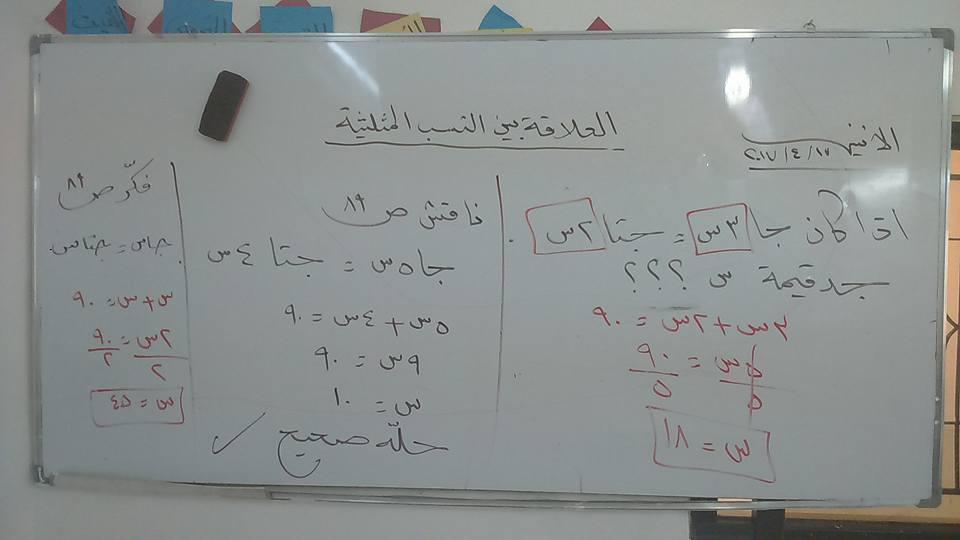 العلاقة بين النسب المثلثية
الاثنين
٢٠١٧/٤/١٧
اذا كان جا ٣س = جتا ٢س .
جد قيمة س ؟؟؟
٣س + ٢س = ٩٠
٥س/٥ = ٩٠/٥
س = ١٨
ناقش ص ٨٩
جا ٥س = جتا ٤س
٥س + ٤س = ٩٠
٩س = ٩٠
س = ١٠
حلّه صحيح ✓
فكّر ص ٨٩
جاس = جتاس
س + س = ٩٠
٢س/٢ = ٩٠/٢
س = ٤٥